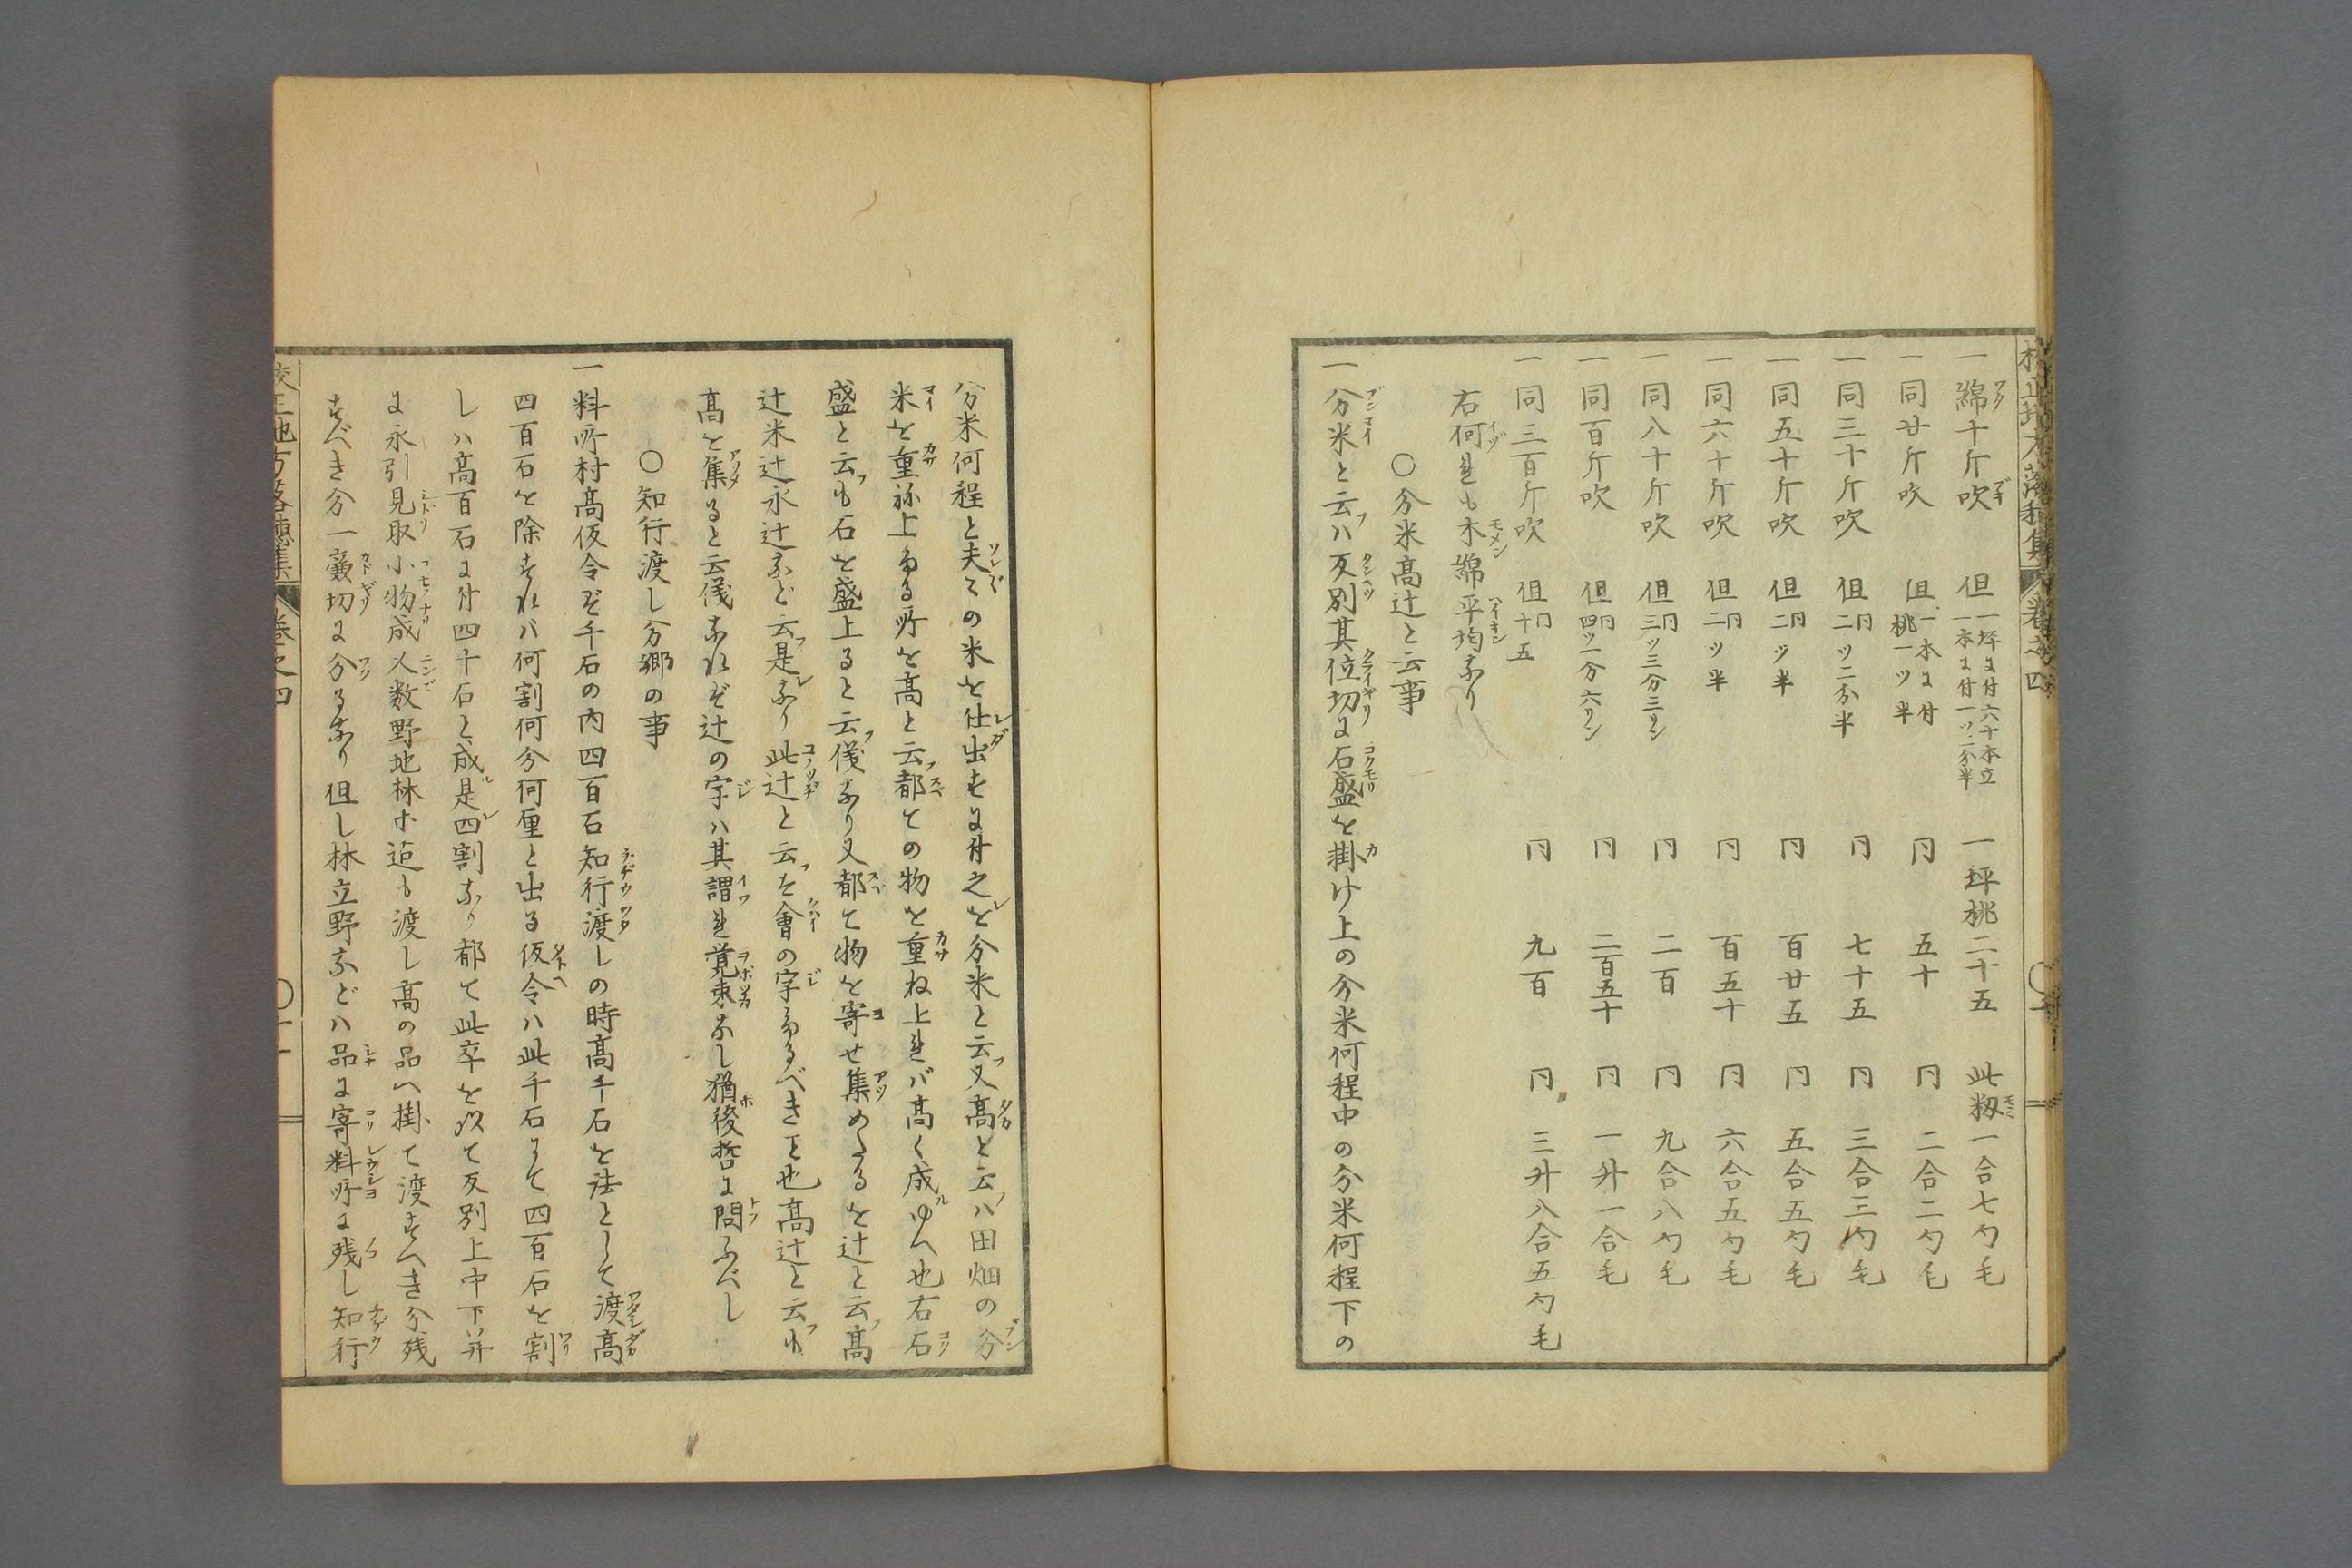 一綿十斤吹 但一坪ニ付六十本立一本ニ付一ッ二分半 一坪桃二十五 此籾一合七勺毛
一同廿斤吹 但一本ニ付桃一ッ半 同 五十 同 二合二勺毛
一同三十斤吹 但同二ッ二分半 同 七十五 同 三合三勺毛
一同五十斤吹 但同二ッ半 同 百廿五 同 五合五勺毛
一同六十斤吹 但同二ッ半 同 百五十 同 六合五勺毛
一同八十斤吹 但同三ッ三分三リン 同 二百 同 九合八勺毛
一同百斤吹 但同四ッ一分六リン 同 二百五十 同 一升一合毛
一同三百斤吹 但同十五 同 九百 同 三升八合五勺毛
右何れも木綿平均なり
〇分米高辻と云事
一分米と云ハ反別其位切に石盛を掛け上の分米何程中の分米何程下の
分米何程と夫々の米を仕出すに付之を分米と云又高と云ハ田畑の分
米を重祢上る所を高と云都ての物を重ね上れバ高く成ゆへ也右石
盛と云も石を盛上ると云儀なり又都て物を寄せ集めたるを辻と云高
辻米辻永辻など云是なり此辻と云を會の字なるべきと也高辻と云も
高を集ると云儀なれど辻の字ハ其謂れ覚束なし猶後哲に問ふべし
〇知行渡し分郷の事
一料所村高仮令ど千石の内四百石知行渡しの時高千石を法として渡高
四百石を除すれバ何割何分何厘と出る仮令ハ此千石にて四百石を割
しハ高百石に付四十石と成是四割なり都て此卒を以て反別上中下并
に永引見取小物成人数野地林ホ迄も渡し高の品へ掛て渡すへき分残
すべき分一嚢切に分るなり但し林立野などハ品に寄料所に残し知行
校正地方落穂集 巻之四